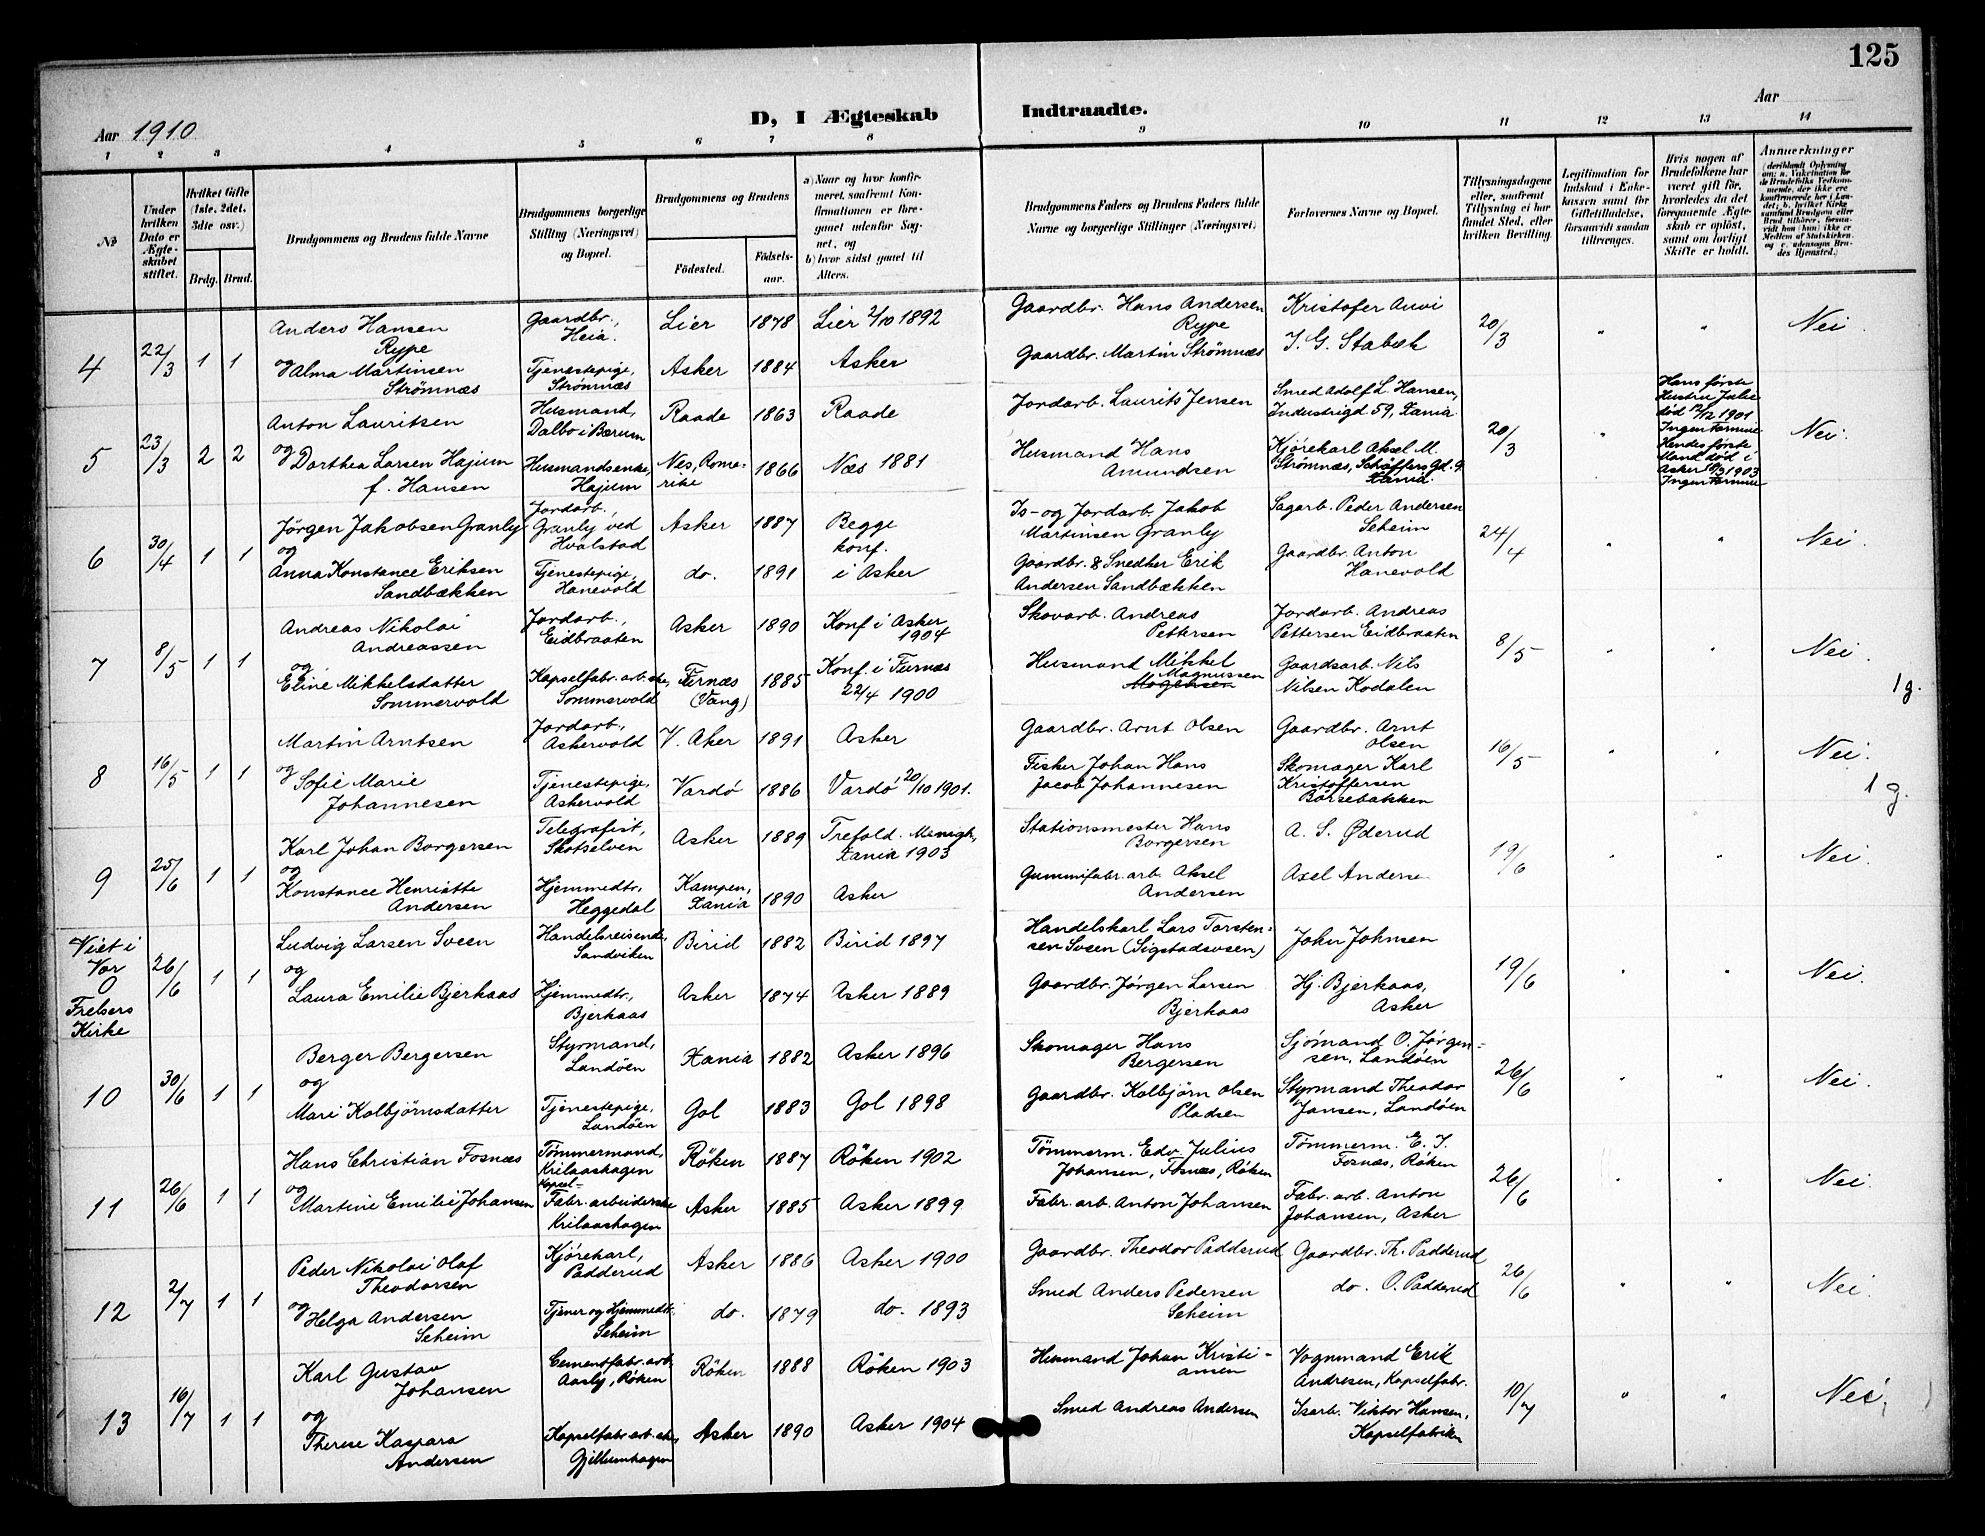 125
Aar 1910
D, I Ægteskab Indtraadte.
Aar
1 2 3 4 5 6 7 8 9 10 11 12 13 14
№
Under hvilken Dato er Ægteskabet stiftet.
Hvilket Gifte (1ste, 2det, 3dte osv.)
Brdg. Brud.
Brudgommens og Brudens fulde Navne
Brudgommens borgerlige Stilling (Næringsvei) og Bopæl.
Brudgommens og Brudens
Fødested.
Fødselsaar.
a) Naar og hvor konfirmeret, saafremt Konfirmationen er foregaaet udenfor Sognet, og
b) hvor sidst gaaet til Alters.
Brudgommens Faders og Brudens Faders fulde Navne og borgerlige Stillinger (Næringsvei)
Forlovernes Navne og Bopæl.
Tillysningsdagene eller, saafremt Tillysning ei har fundet Sted, efter hvilken Bevilling.
Legitimation for Indskud i Enkekassen samt for Giftetilladelse, forsaavidt saadan tiltrænges.
Hvis nogen af Brudefolkene har været gift før, hvorledes da det foregaaende Ægteskab er opløst, samt om lovligt Skifte er holdt.
Anmærkninger
4 22/3 1 1
Anders Hansen Rype
Gaardbr., Heia.
Lier 1878 Lier 2/10 1892
Gaardbr. Hans Andersen Rype
Kristofer Auvi
20/3 " " Nei.
og Alma Martinsen Strömnæs
Tjenestepige, Strömnæs
Asker 1884 Asker
Gaardbr. Martin Strömnæs
I. G. Stabæk
5 23/3 2 2
Anton Lauritsen
Husmand, Dalbo i Bærum
Raade 1863 Raade
Jordarb. Laurits Jensen
Smed Adolf L. Hansen, Industrigd 59, Xania.
20/3 "
Hans første Hustru Julie död 12/12 1901 Ingen Formue
Hendes første Mand död i Asker 1903 Ingen Formue
Nei.
og Dorthea Larsen Hajum f. Hansen
Husmandsenke, Hajum
Nes, Romerike 1866 Næs 1881
Husmand Hans Amundsen
Kjörekarl Aksel M. Strömnæs, Schäffers Gd. 9 Xania.
6 30/4 1 1
Jörgen Jakobsen Granly
Jordarb., Granly ved Hvalstad
Asker 1887 Begge konf. i Asker
Is- og Jordarb. Jakob Martinsen Granly
Sagarb. Peder Andersen Seheim
24/4 " " Nei.
og
Anna Konstance Eriksen Sandbækken
Tjenestepige, Hanevold
do. 1891
Gaardbr. & Snedker Erik Andersen Sandbækken
Gaardbr. Anton Hanevold
7 8/5 1 1
Andreas Nikolai Andreassen
Jordarb., Eidbraaten
Asker 1890 Konf. i Asker 1904
Skovarb. Andreas Pettersen
Jordarb. Andreas Pettersen Eidbraaten
8/5 " " Nei.
og
Eline Mikkelsdatter Sommervold
Kapselfabr. arb.ske, Sommervold
Furnæs (Vang) 1885 Konf. i Furnæs 22/4 1900
Husmand Mikkel Magnussen
Gaardsarb. Nils Nilsen Kodalen
1 g.
8 16/5 1 1
Martin Arntsen
Jordarb., Askervold
V. Aker 1891 Asker
Gaardbr. Arnt Olsen
Gaardbr. Arnt Olsen
16/5 " " Nei.
og Sofie Marie Johannesen
Tjenestepige, Askervold
Vardö 1886 Vardö 20/10 1901.
Fisker Johan Hans Jacob Johannesen
Skomager Karl Kristoffersen Börsebakken
1 g.
9 25/6 1 1
Karl Johan Borgersen
Telegrafist, Skotselven
Asker 1889 Trefold. Menigh., Xania 1903
Stationsmester Hans Borgersen
A. S. Öderud
19/6 " " Nei.
og
Konstance Henriette Andersen
Hjemmedtr., Heggedal
Kampen, Xania 1890 Asker
Gummifabr. arb. Aksel Andersen
Axel Anderse
Viet i Vor Frelsers Kirke
26/6 1 1
Ludvig Larsen Sveen
Handelsreisende, Sandviken
Birid 1882 Birid 1897
Handelskarl Lars Torstensen Sveen (Sigstadsveen)
John Johnsen
19/6 " " Nei.
og
Laura Emilie Bjerkaas
Hjemmedtr., Bjerkaas
Asker 1874 Asker 1889
Gaardbr. Jörgen Larsen Bjerkaas
Hj. Bjerkaas, Asker
10 30/6 1 1
Berger Bergersen
Styrmand, Landöen
Xania 1882 Asker 1896
Skomager Hans Bergersen
Sjömand O. Jörgensen, Landöen
26/6 " " Nei.
og
Mari Kolbjörnsdatter
Tjenestepige, Landöen
Gol 1883 Gol 1898
Gaardbr. Kolbjörn Olsen Pladsen
Styrmand Theodor Jansen, Landöen
11 26/6 1 1
Hans Christian Fosnæs
Tömmermand, Krilaashagen
Röken 1887 Röken 1902
Tömmerm. Edv. Julius Johansen, Fosnæs, Röken
Tömmerm. E. J. Fosnæs, Röken
26/6 " " Nei.
og
Martine Emilie Johansen
Kapsel-Fabr. arbeiderske Krilaashagen
Asker 1885 Asker 1899
Fabr. arb. Anton Johansen
Fabr. arb. Anton Johansen, Asker
12 2/7 1 1
Peder Nikolai Olaf Theodorsen
Kjörekarl, Padderud
Asker 1886 Asker 1900
Gaardbr. Theodor Padderud
Gaardbr. Th. Padderud
26/6 " " Nei.
og Helga Andersen Seheim
Tjener og Hjemmedtr. Seheim
do. 1879 do. 1893
Smed Anders Pedersen Seheim
do. O. Padderud
13 16/7 1 1
Karl Gustav Johansen
Cementfabr. arb. Aasly, Röken
Röken 1888 Röken 1903
Husmand Johan Kristiansen
Vognmand Erik Andresen, Kapselfabr.
10/7 " " Nei.
og
Therese Kaspara Andersen
Kapselfabr. arb.ske, Gjellumhagen
Asker 1890 Asker 1904
Smed Andreas Andersen
Isarb. Viktor Hansen, Kapselfabriken